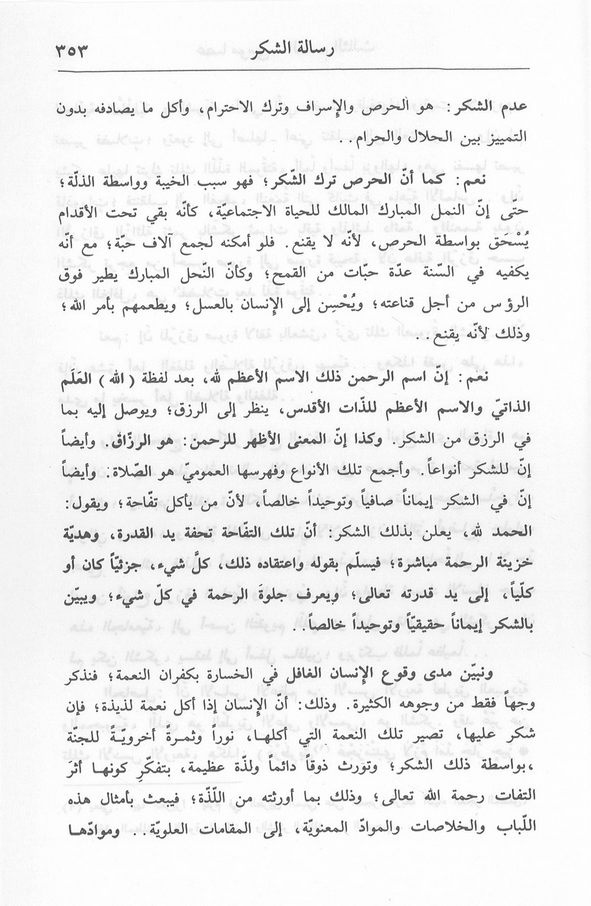 رسالة الشكر
٣٥٣
عدم الشكر: هو الحرص والإسراف وترك الاحترام، وأكل ما يصادفه بدون
التمييز بين الحلال والحرام..
نعم: كما أنّ الحرص ترك الشّكر؛ فهو سبب الخيبة وواسطة الذلّة؛
حتّى إنّ النمل المبارك المالك للحياة الاجتماعيّة، كأنّه بقي تحت الأقدام
يُسْحَق بواسطة الحرص، لأنه لا يقنع. فلو أمكنه لجمع آلاف حبّة؛ مع أنه
يكفيه في السّنة عدّة حبّات من القمح؛ وكأنّ النحل المبارك يطير فوق
الرؤس من أجل قناعته؛ ويُحْسِن إلى الإنسان بالعسل؛ ويطعمهم بأمر الله؛
وذلك لأنّه يقنع..
نعم: إنّ اسم الرحمن ذلك الاسم الأعظم لله، بعد لفظة (الله) العَلَم
الذاتيّ والاسم الأعظم للذّات الأقدس، ينظر إلى الرزق؛ ويوصل إليه بما
في الرزق من الشكر. وكذا إنّ المعنى الأظهر للرحمن: هو الرزّاق. وأيضاً
إنّ للشكر أنواعاً. وأجمع تلك الأنواع وفهرسها العموميّ هو الصّلاة: وأيضاً
إنّ في الشكر إيماناً صافياً وتوحيداً خالصاً، لأن من يأكل تفّاحة؛ ويقول:
الحمد لله، يعلن بذلك الشكر: أنّ تلك التفّاحة تحفة يد القدرة، وهديّة
خزينة الرحمة مباشرة؛ فيسلّم بقوله واعتقاده ذلك، كلَّ شيء، جزئيّاً كان أو
كلّياً، إلى يد قدرته تعالى؛ ويعرف جلوةَ الرحمة في كلّ شيء؛ ويبيّن
بالشكر إيماناً حقيقيّاً وتوحيداً خالصاً..
ونبيّن مدى وقوع الإنسان الغافل في الخسارة بكفران النعمة؛ فنذكر
وجهاً فقط من وجوهه الكثيرة. وذلك: أنّ الإنسان إذا أكل نعمة لذيذة؛ فإن
شكر عليها، تصير تلك النعمة التي أكلها، نوراً وثمرةً أخرويّةً للجنّة
،بواسطة ذلك الشكر؛ وتورث ذوقاً دائماً ولذّة عظيمة، بتفكّرِ كونها أثرَ
التفات رحمة الله تعالى؛ وذلك بما أورثته من اللّذّة؛ فيبعث بأمثال هذه
اللّباب والخلاصات والموادّ المعنوية، إلى المقامات العلويّة.. وموادّها